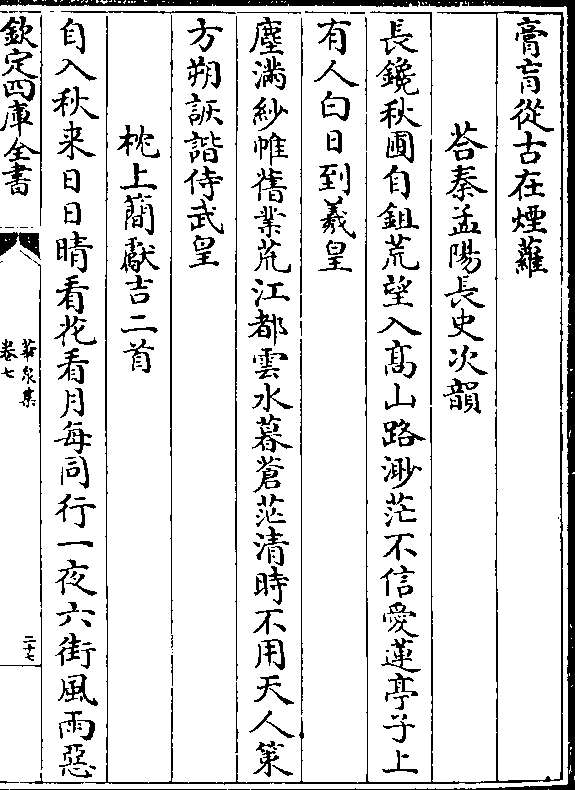 膏肓從古在煙蘿
荅秦孟陽長史次韻
長鑱秋圃自鉏荒望入髙山路渺茫不信愛蓮亭子上
有人白日到羲皇
塵滿紗帷舊業荒江都雲水暮蒼茫清時不用天人策
方朔詼諧侍武皇
枕上簡獻吉二首
自入秋来日日晴看花看月每同行一夜六街風雨惡
欽定四庫全書
華泉集
卷七
二十七